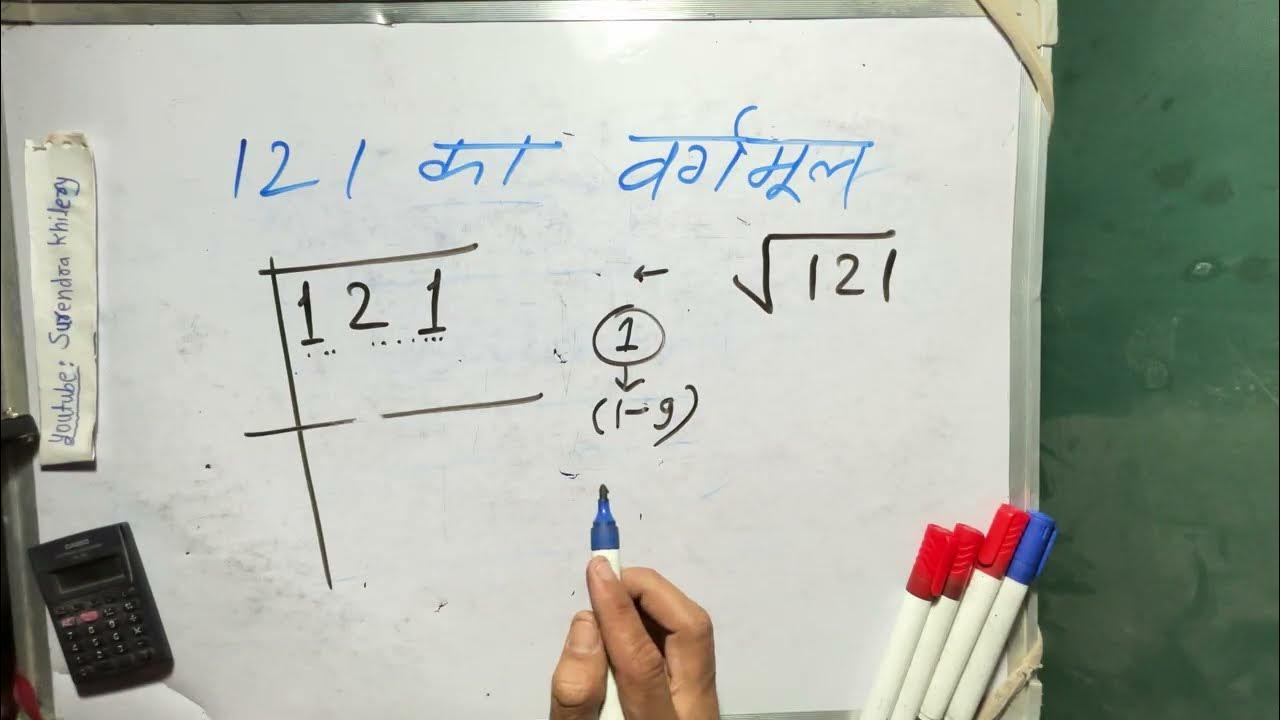 121 का वर्गमूल
Youtube: Surendra Khilery
1 2 1
← √121
1
↓
(1-9)
CASIO